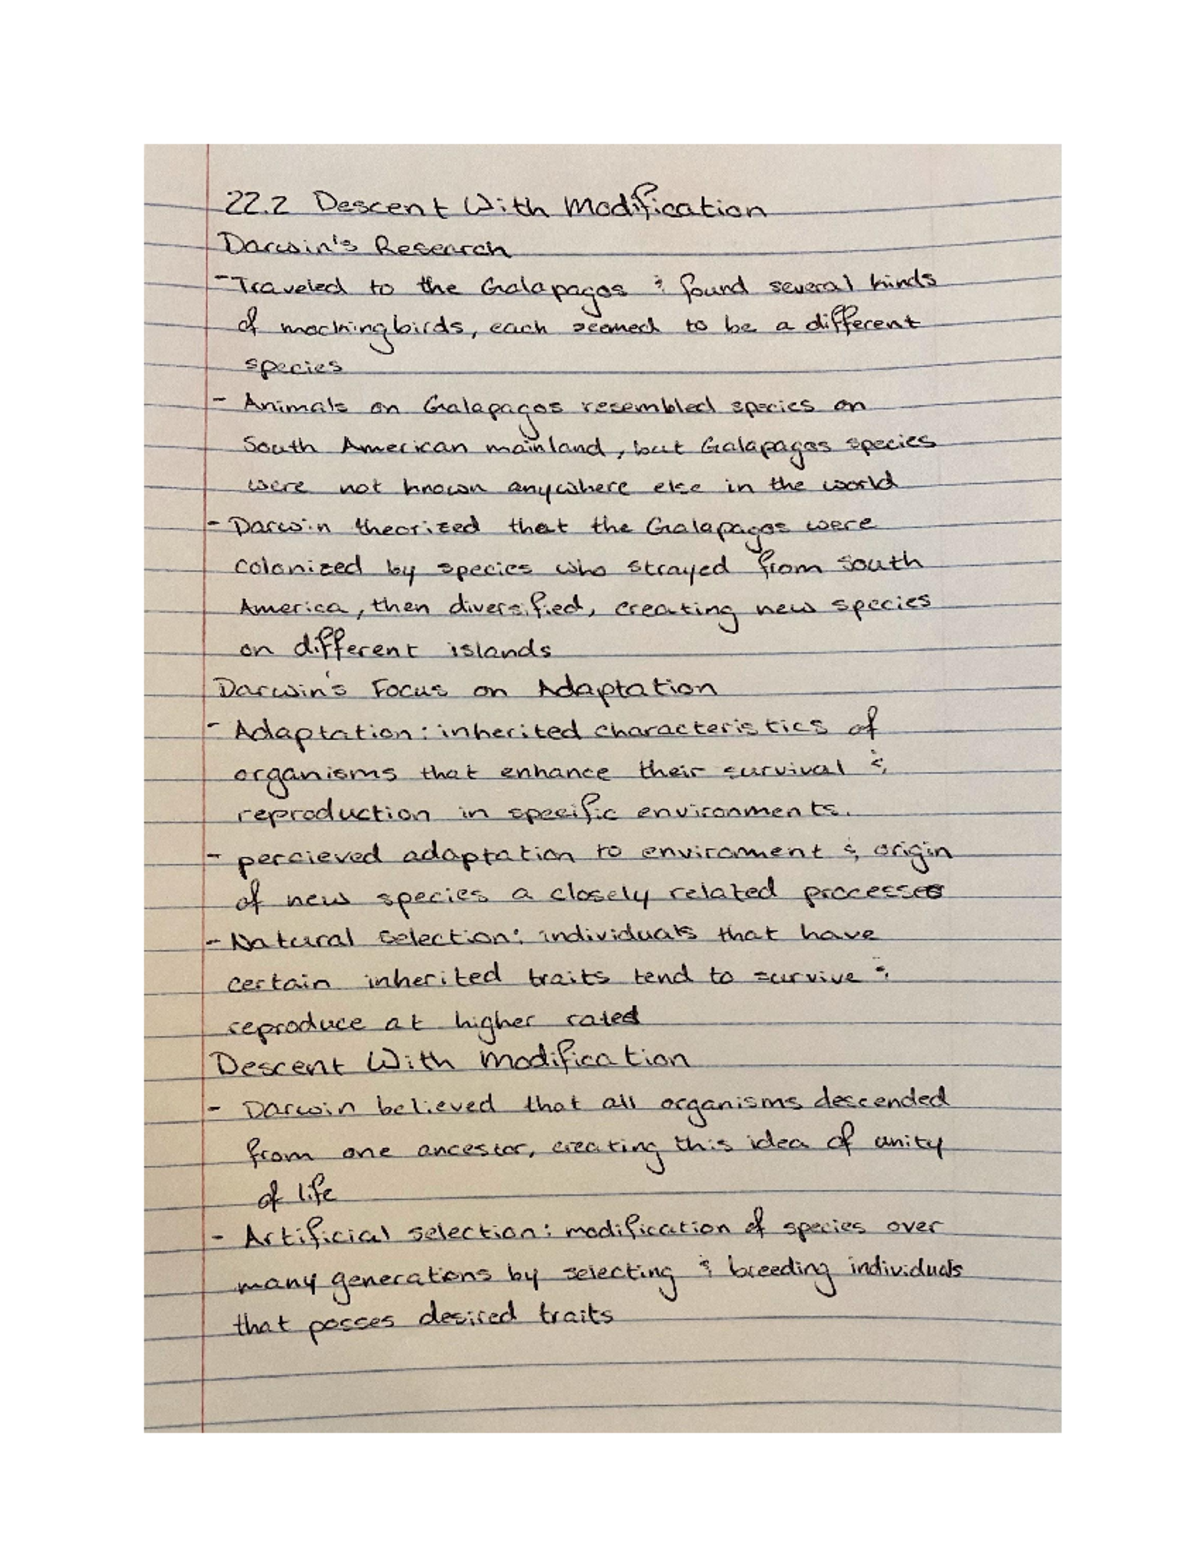 22.2 Descent With Modification
Darwin's Research
- Traveled to the Galapagos & found several kinds
of mockingbirds, each seemed to be a different
species
- Animals on Galapagos resembled species on
South American mainland, but Galapagos species
were not known anywhere else in the world
- Darwin theorized that the Galapagos were
colonized by species who strayed from South
America, then diversified, creating new species
on different islands
Darwin's Focus on Adaptation
- Adaptation: inherited characteristics of
organisms that enhance their survival &
reproduction in specific environments.
- percieved adaptation to environment & origin
of new species a closely related processes
- Natural Selection: individuals that have
certain inherited traits tend to survive &
reproduce at higher rates
Descent With Modification
- Darwin believed that all organisms descended
from one ancestor, creating this idea of unity
of life
- Artificial selection: modification of species over
many generations by selecting & breeding individuals
that posses desired traits